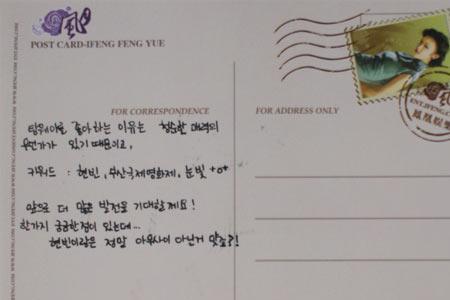 POST CARD-IFENG FENG YUE
FOR CORRESPONDENCE
FOR ADDRESS ONLY
탕웨이를 좋아하는 이유는 청순한 매력의
유전자가 있기때문이고,
키워드 : 현빈, 부산국제영화제, 눈빛 +o+
앞으로 더 많은 발전을 기대할께요!
한가지 궁금한점이 있는데...
현빈이랑은 정말 아무사이 아닌거 맞죠?!
ENT.IFENG.COM